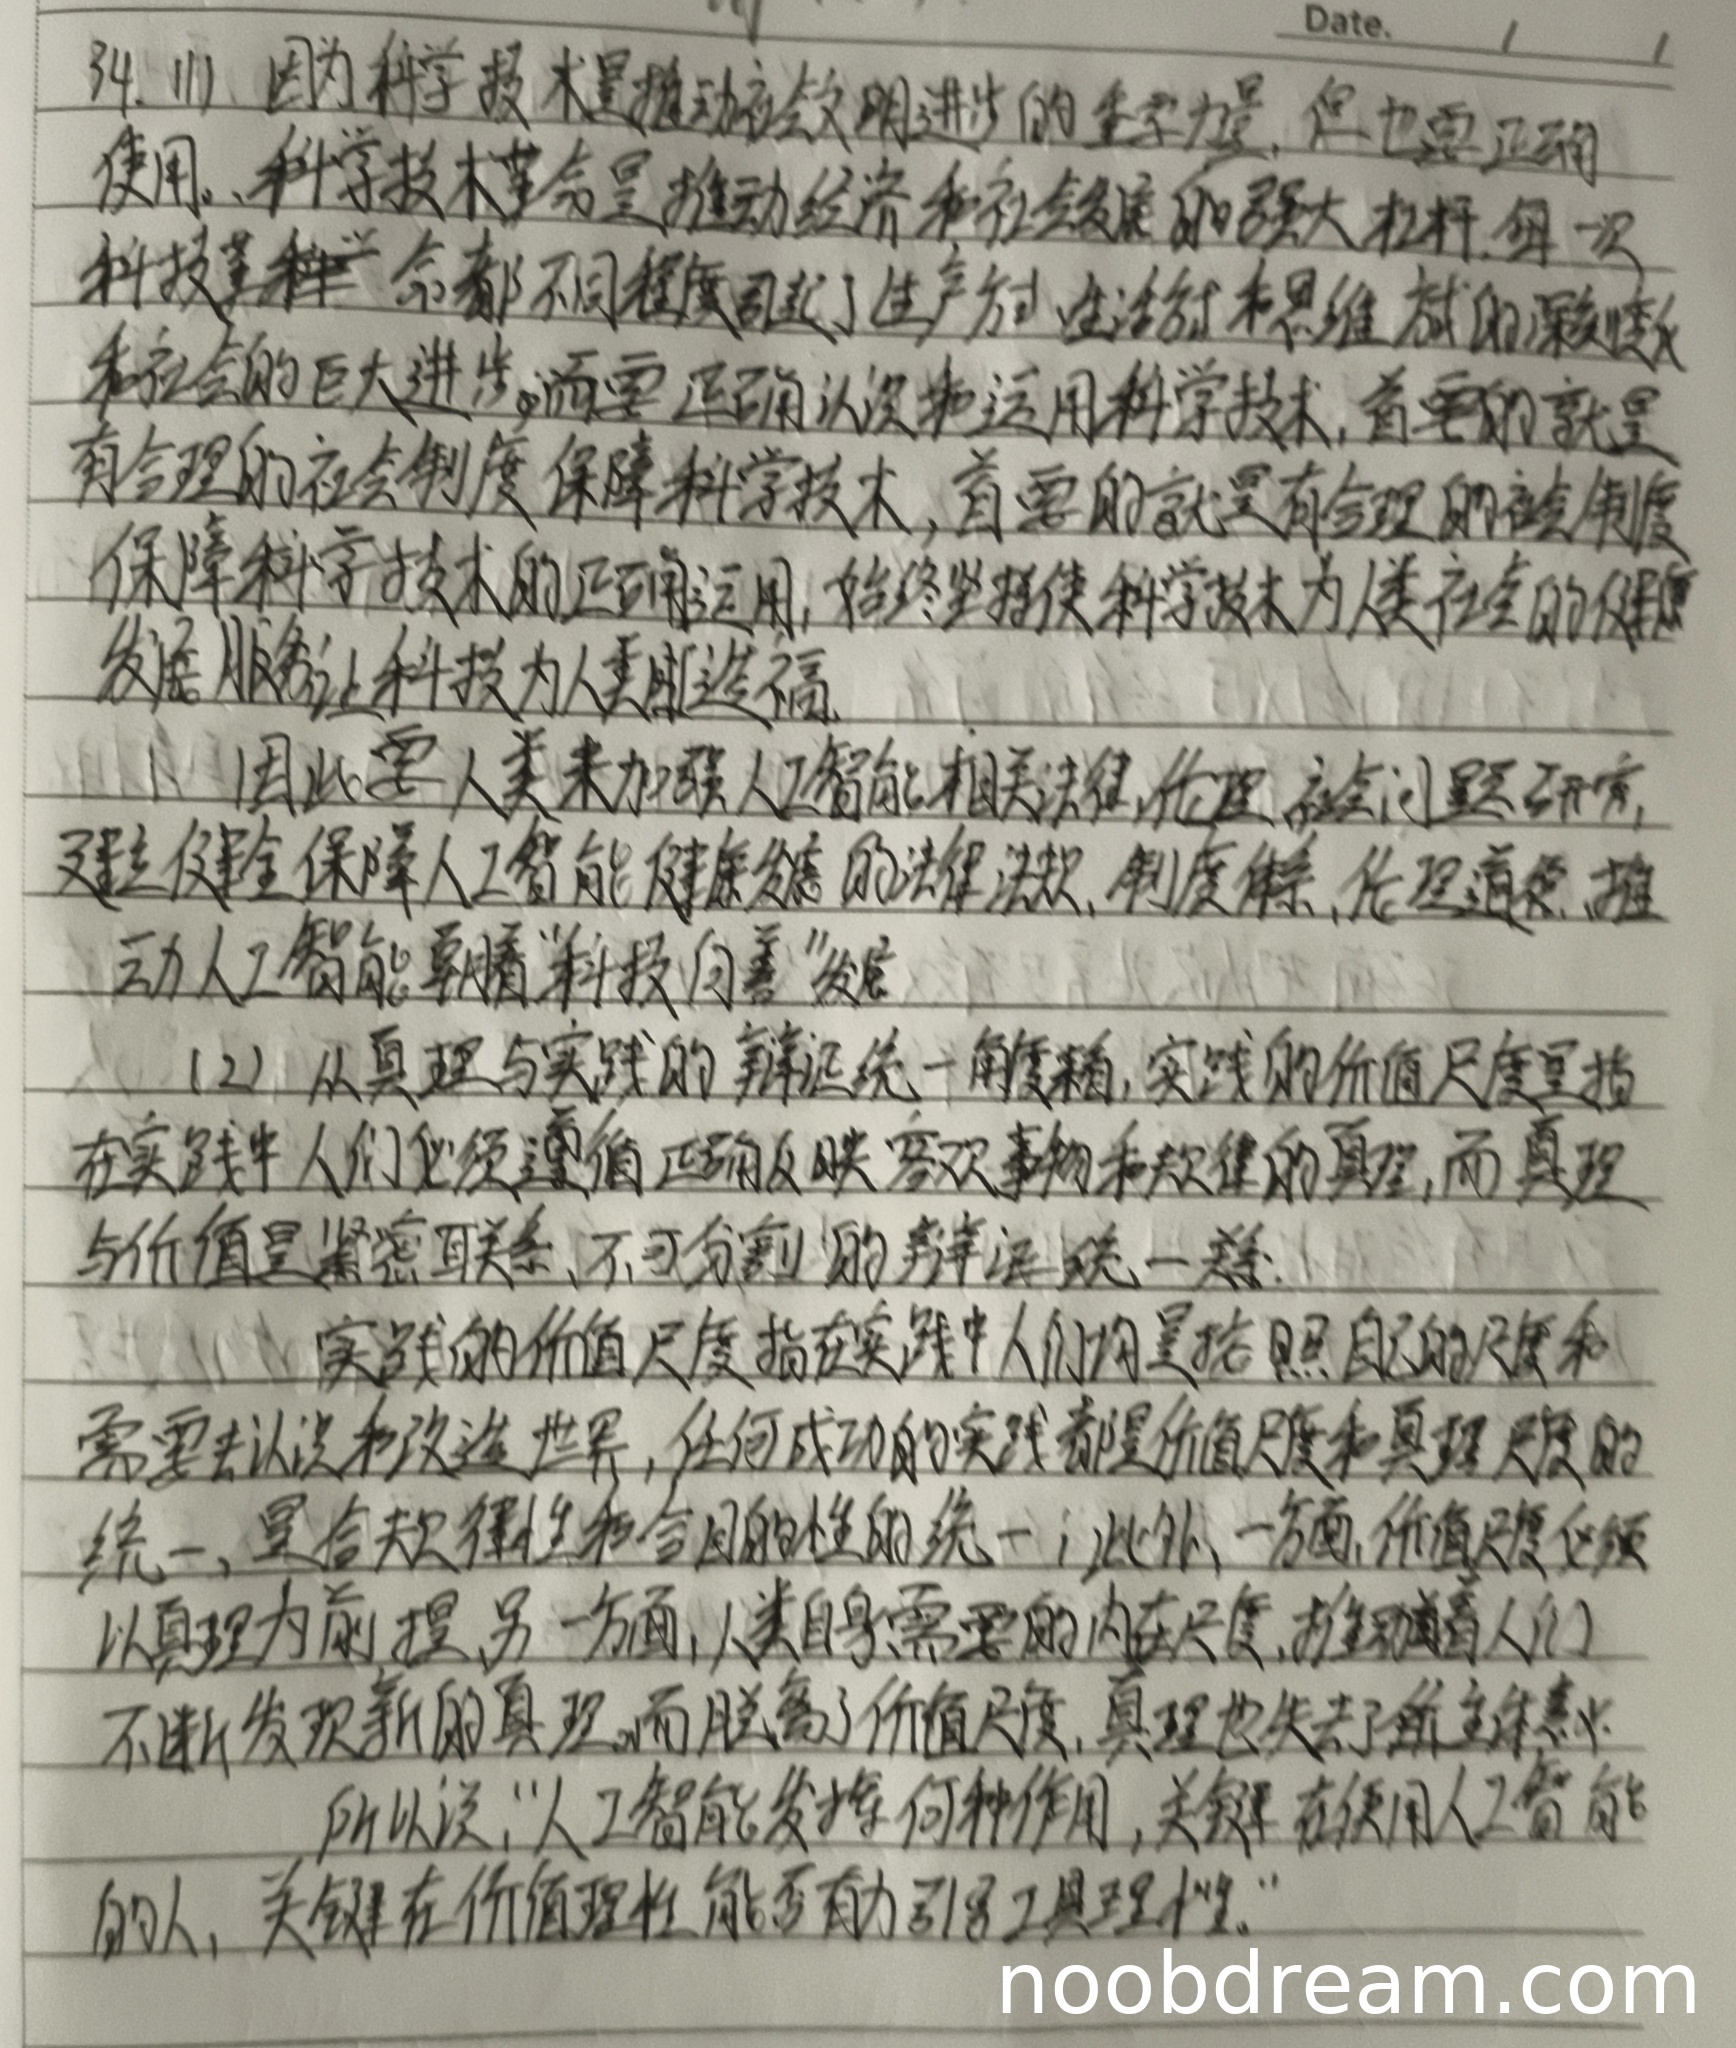 Date. / /
34. (1) 因为科学技术是推动社会文明进步的重要力量,但也要正确
使用。科学技术革命是推动经济和社会发展的强大杠杆.每一次
科技革命都不同程度引起了生产方式 生活方式和思维方式的深刻变化
和社会的巨大进步。而要正确认识和运用科学技术,首要的就是
有合理的社会制度保障科学技术,首要的就是有合理的社会制度
保障科学技术的正确运用,始终坚持使科学技术为人类社会的健康
发展服务让科技为人类造福.
因此要人类来加强人工智能相关法律,伦理、社会问题研究,
建立健全保障人工智能健康发展的法律法规、制度体系、伦理道德、推
动人工智能朝着“科技向善”发展
(2) 从真理与实践的辩证统一角度来看,实践的价值尺度是指
在实践中人们必须遵循正确反映客观事物和规律的真理,而真理
与价值是紧密联系、不可分割的辩证统一关系.
实践的价值尺度指在实践中人们均是按照自己的尺度和
需要去认识和改造世界,任何成功的实践都是价值尺度和真理尺度的
统一、是合规律性和合目的性的统一;此外、一方面,价值尺度必须
以真理为前提、另一方面,人类自身需要的内在尺度,推动着人们
不断发现新的真理。而脱离了价值尺度,真理也失去了主体意义.
所以说,“人工智能发挥何种作用,关键在使用人工智能
的人,关键在价值理性能否有力引导工具理性。”
noobdream.com